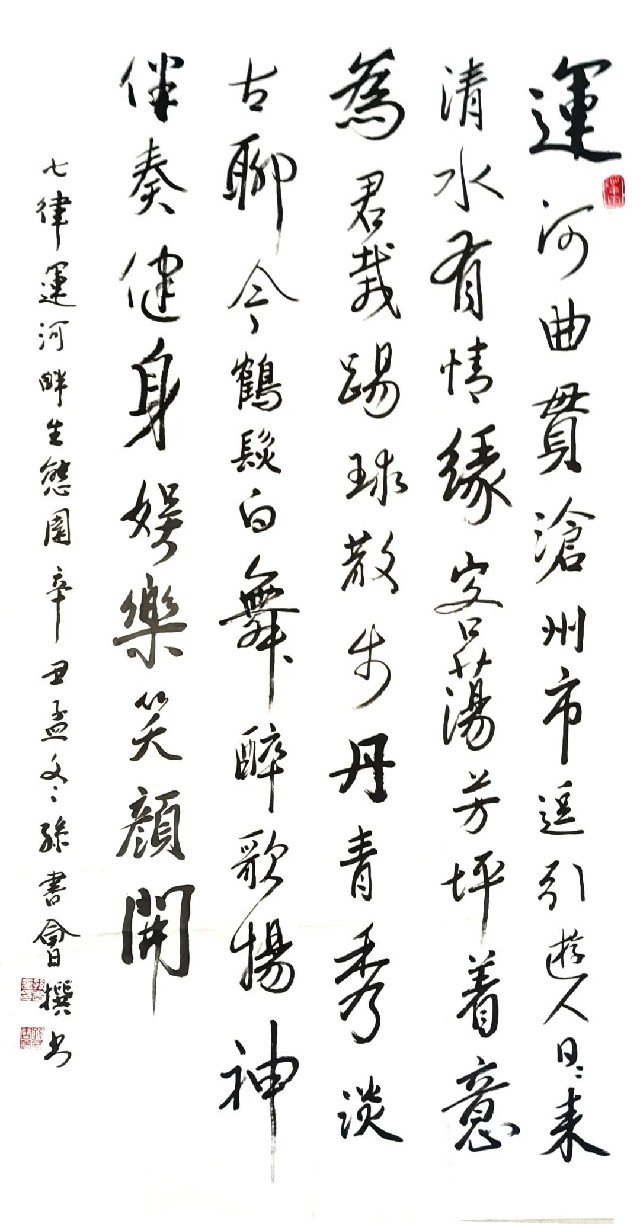 運河曲貫滄州市遥引遊人日〻来
清水有情緣客蕩芳坪着意
為君栽踢球散步丹青秀淡
古聊今鶴髮白舞醉歌揚神
伴奏健身娛樂笑顏開
七律運河畔生態園辛丑孟冬孫書會撰书